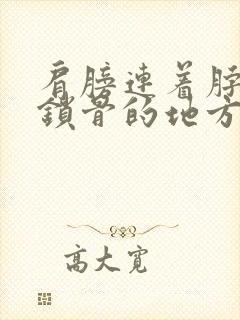 肩膀連着脖
鎖骨的地方
高大寬